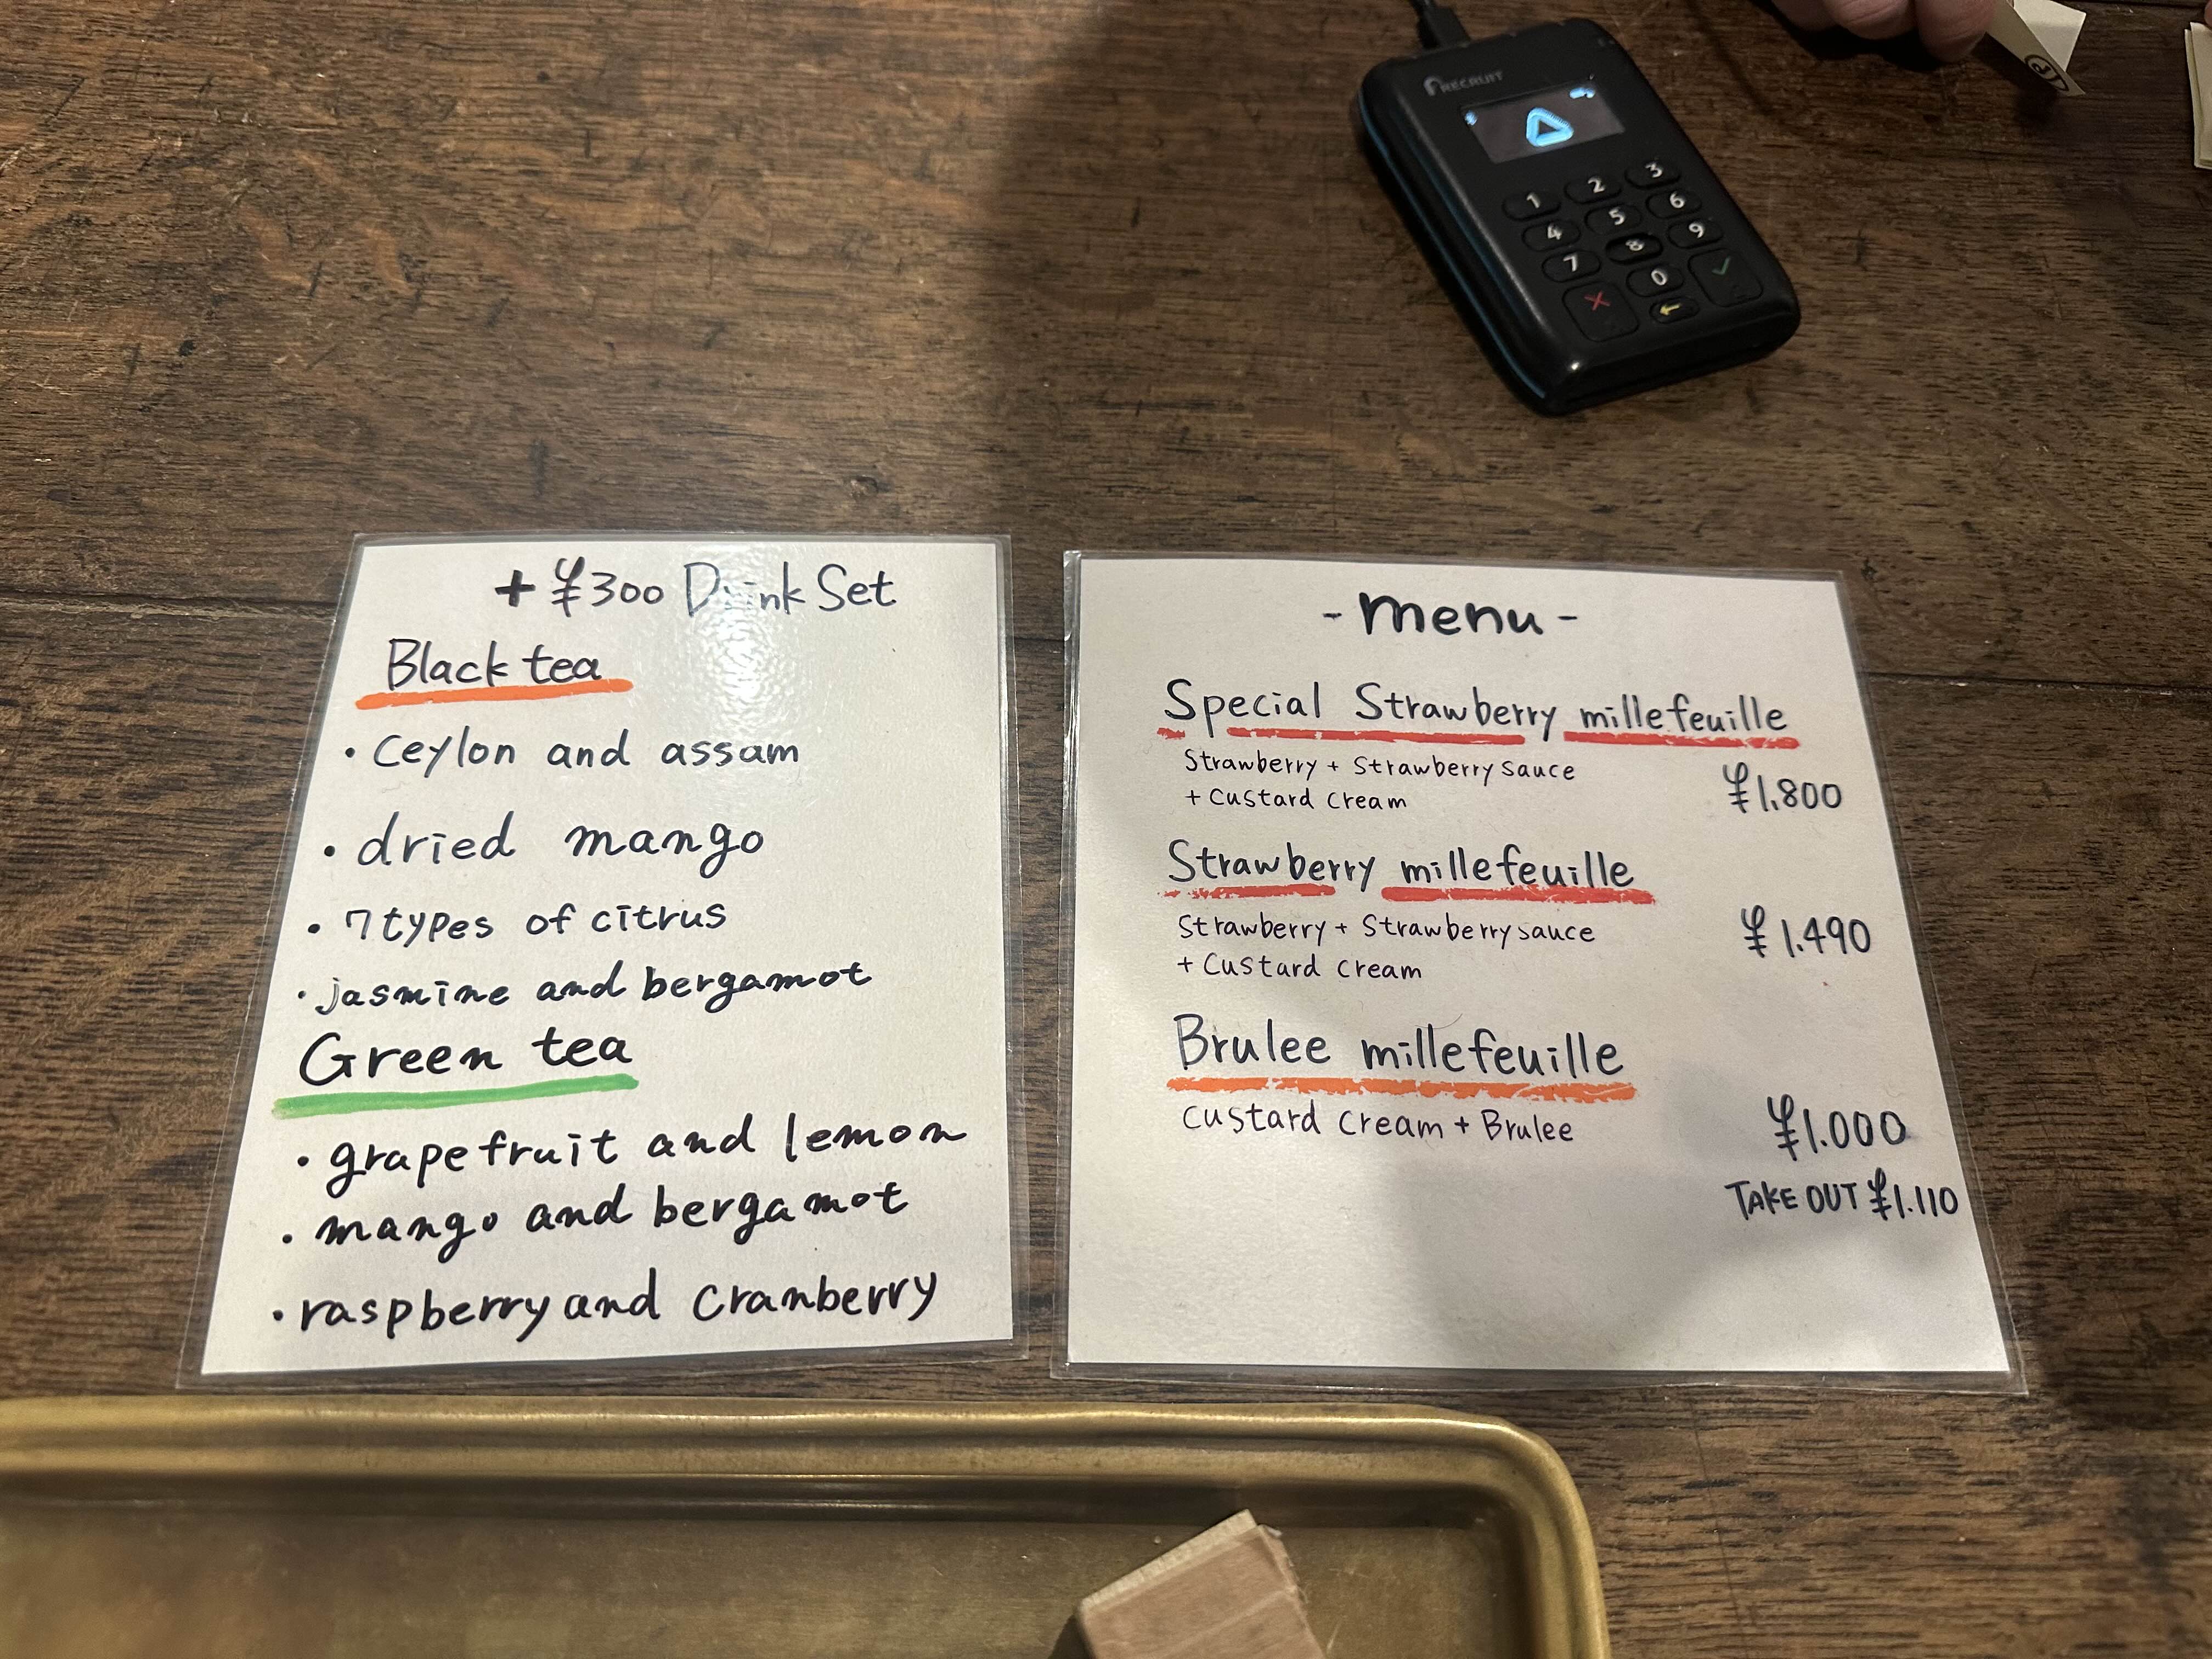 RECRUIT
1 2 3
4 5 6
7 8 9
0
+ ¥300 Drink Set
Black tea
・Ceylon and assam
・dried mango
・7types of citrus
・jasmine and bergamot
Green tea
・grapefruit and lemon
・mango and bergamot
・raspberry and cranberry
- menu -
Special Strawberry millefeuille
Strawberry + Strawberry sauce
+ Custard cream
¥1,800
Strawberry millefeuille
Strawberry + Strawberry sauce
+ Custard cream
¥1.490
Brulee millefeuille
Custard cream + Brulee
¥1.000
TAKE OUT ¥1.110